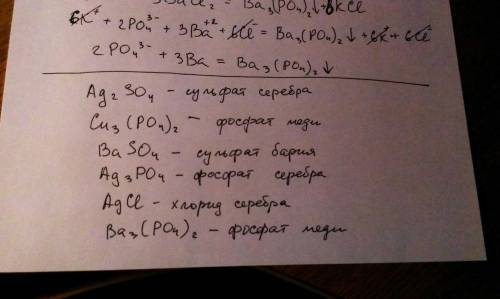 3BaCl₂ = Ba₃(PO₄)₂↓+6KCl
6K⁺ + 2PO₄³⁻ + 3Ba⁺² + 6Cl⁻ = Ba₃(PO₄)₂↓ + 6K⁺ + 6Cl⁻
2PO₄³⁻ + 3Ba = Ba₃(PO₄)₂↓
Ag₂SO₄ – сульфат серебра
Cu₃(PO₄)₂ – фосфат меди
BaSO₄ – сульфат бария
Ag₃PO₄ – фосфат серебра
AgCl – хлорид серебра
Ba₃(PO₄)₂ – фосфат меди